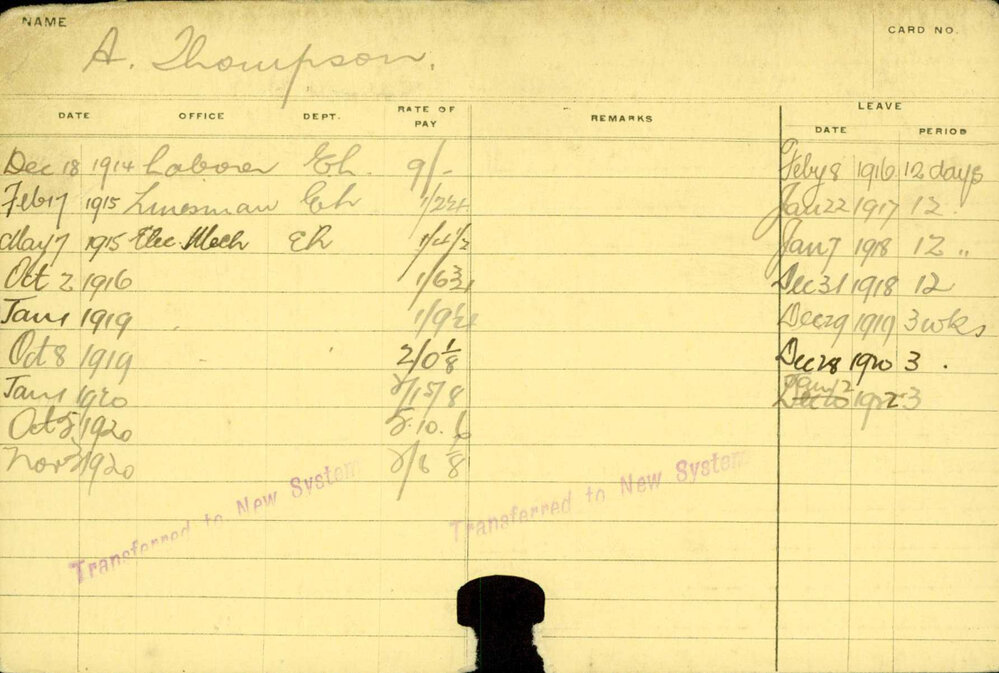 NAME
A. Thompson.
CARD NO.
DATE OFFICE DEPT. RATE OF PAY REMARKS LEAVE DATE PERIOD
Dec 18 1914 Laborer 9/- Feby 8 1916 12 days
Feb 17 1915 Linesman Jan 22 1917 12
May 7 1915 Elec. Mech Jan 7 1918 12 "
Oct 2 1916 1/6¾ Dec 31 1918 12
Jan 1 1919 Dec 29 1919 3 wks
Oct 8 1919 2/0 1/8 Dec 28 1920 3 .
Jan 1 1920 Jan 12 1922 3
Oct 1920
Nov 1920 2/6 1/8
Transferred to New System
Transferred to New System